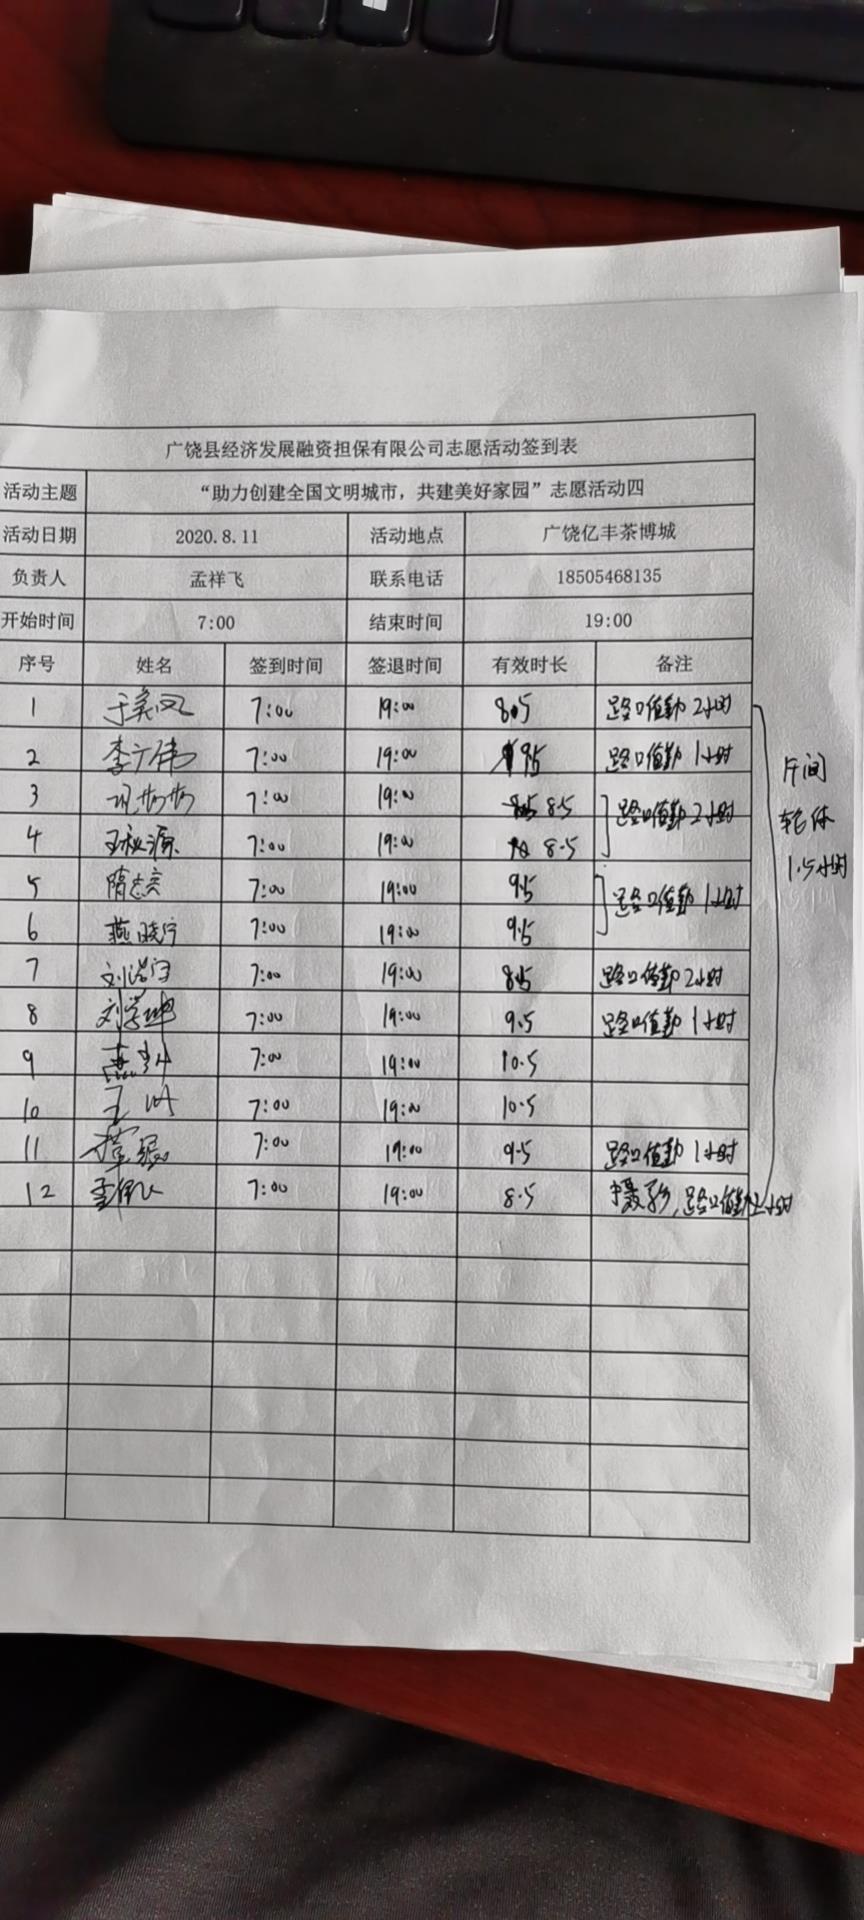 广饶县经济发展融资担保有限公司志愿活动签到表
活动主题 “助力创建全国文明城市，共建美好家园”志愿活动四
活动日期 2020.8.11 活动地点 广饶亿丰茶博城
负责人 孟祥飞 联系电话 18505468135
开始时间 7:00 结束时间 19:00
序号 姓名 签到时间 签退时间 有效时长 备注
1 于美凤 7:00 19:00 8.5 路口值勤2小时
2 李广伟 7:00 19:00 9.5 路口值勤1小时
3 7:00 19:00 8.5 路口值勤2小时
4 王秋源 7:00 19:00 8.5
5 隋志亮 7:00 19:00 9.5 路口值勤1小时
6 燕晓宁 7:00 19:00 9.5
7 7:00 19:00 8.5 路口值勤2小时
8 7:00 19:00 9.5 路口值勤1小时
9 7:00 19:00 10.5
10 7:00 19:00 10.5
11 7:00 19:00 9.5 路口值勤1小时
12 7:00 19:00 8.5 摄影，路口值勤2小时
午间
轮休
1.5小时